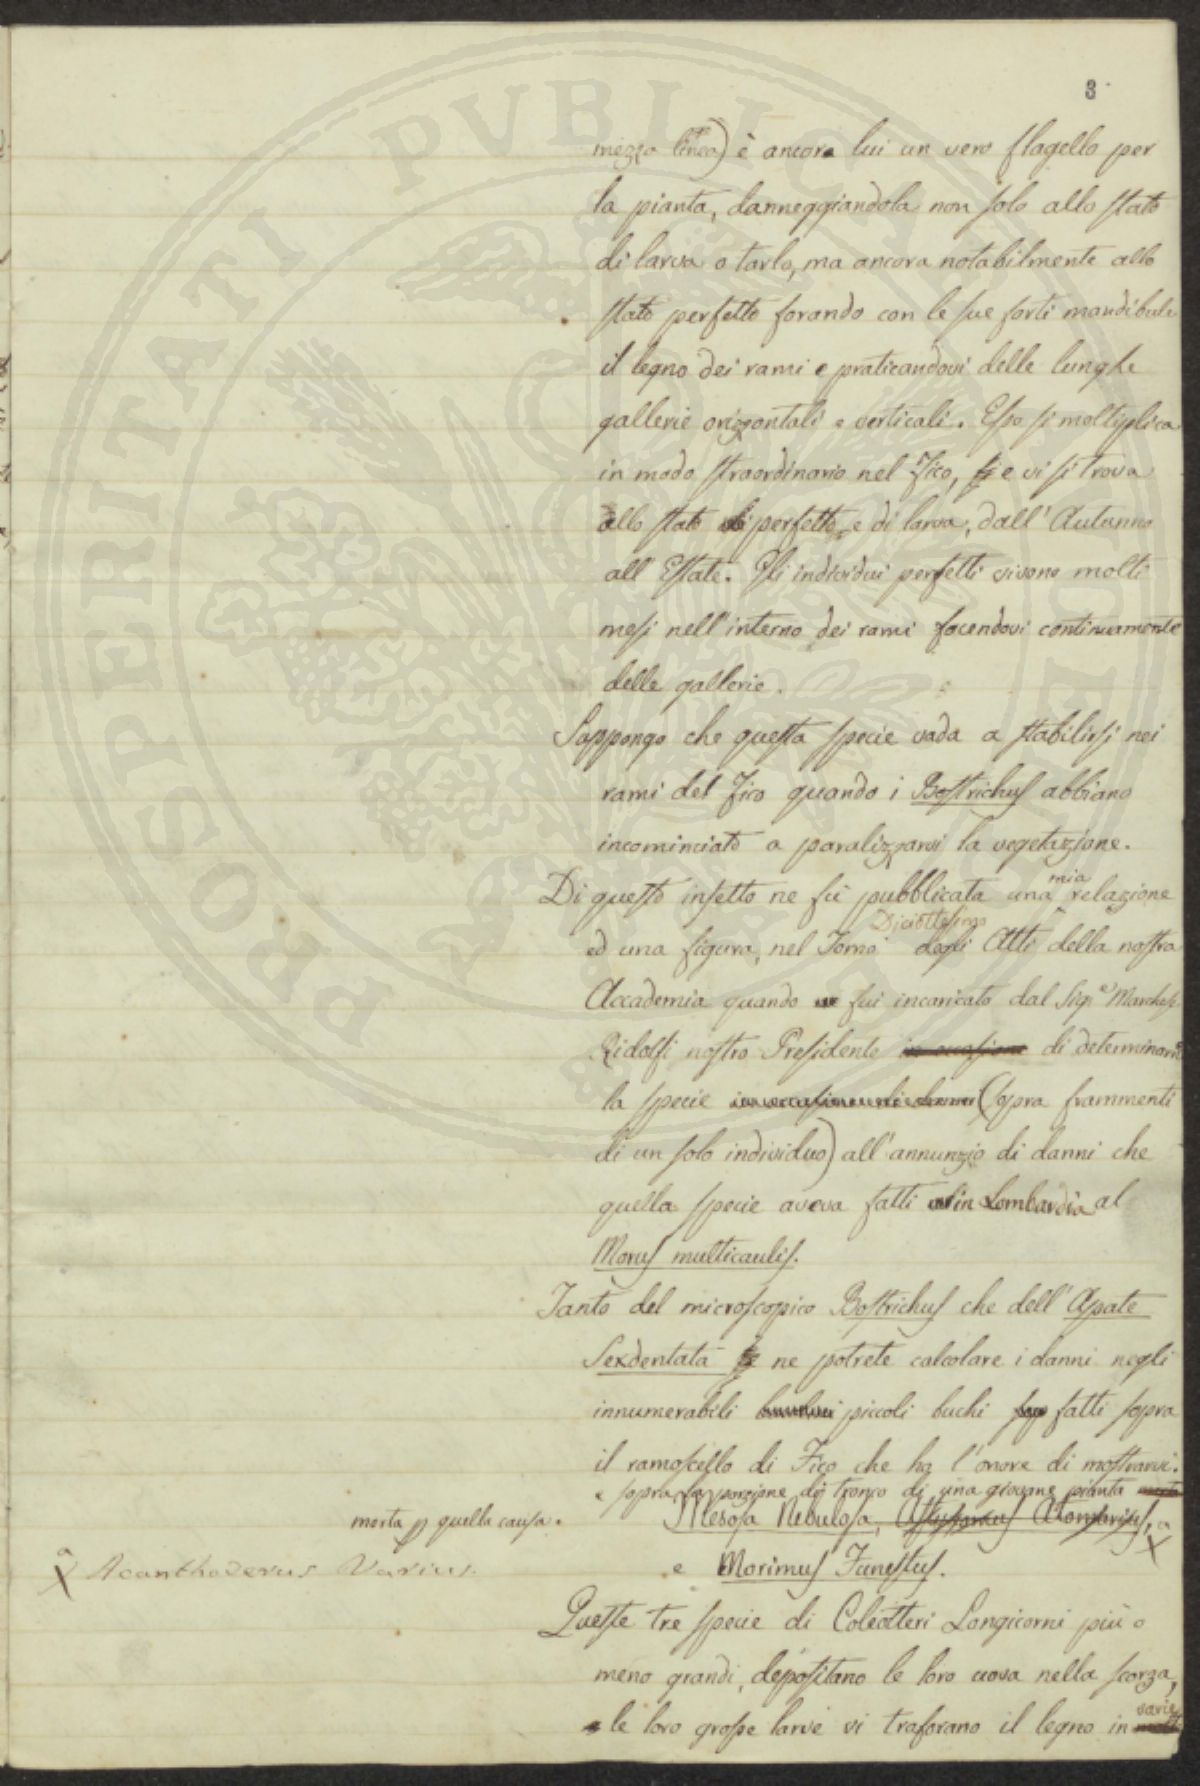 3
mezza linea) è ancora lui un vero flagello per
la pianta, danneggiandola non solo allo stato
di larva o tarlo, ma ancora notabilmente allo
stato perfetto forando con le sue forti mandibule
il legno dei rami e praticandovi delle lunghe
gallerie orizzontali e verticali. Esso si moltiplica
in modo straordinario nel Fico, e vi si trova
allo stato perfetto, e di larva, dall' Autunno
all' Estate. Gli individui perfetti vivono molti
mesi nell' interno dei rami facendovi continuamente
delle gallerie.
Suppongo che questa specie vada a stabilirsi nei
rami del Fico quando i Bostrichus abbiano
incominciato a paralizzarvi la vegetazione.
Di questo insetto ne fù pubblicata una mia relazione
ed una figura, nel Tomo Diciottesimo degli Atti della nostra
Accademia quando fui incaricato dal Sig.e Marchese
Ridolfi nostro Presidente in occasione di determinarne
la specie (sopra frammenti
di un solo individuo) all' annunzio di danni che
quella specie aveva fatti in Lombardia al
Morus multicaulis.
Tanto del microscopico Bostrichus che dell' Apate
Sexdentata ne potrete calcolare i danni negli
innumerabili piccoli buchi fatti sopra
il ramoscello di Fico che ha l'onore di mostrarvi.
e sopra la porzione di tronco di una giovane pianta
morta p quella causa.
Mesosa Nebulosa, Astynomus Atomarius, a X
a X Acanthoderus Varius.
e Morimus Funestus.
Queste tre specie di Coleotteri Longicorni più o
meno grandi, depositano le loro uova nella scorza,
le loro grosse larve vi traforano il legno in varie
PROSPERITATI PVBLICAE